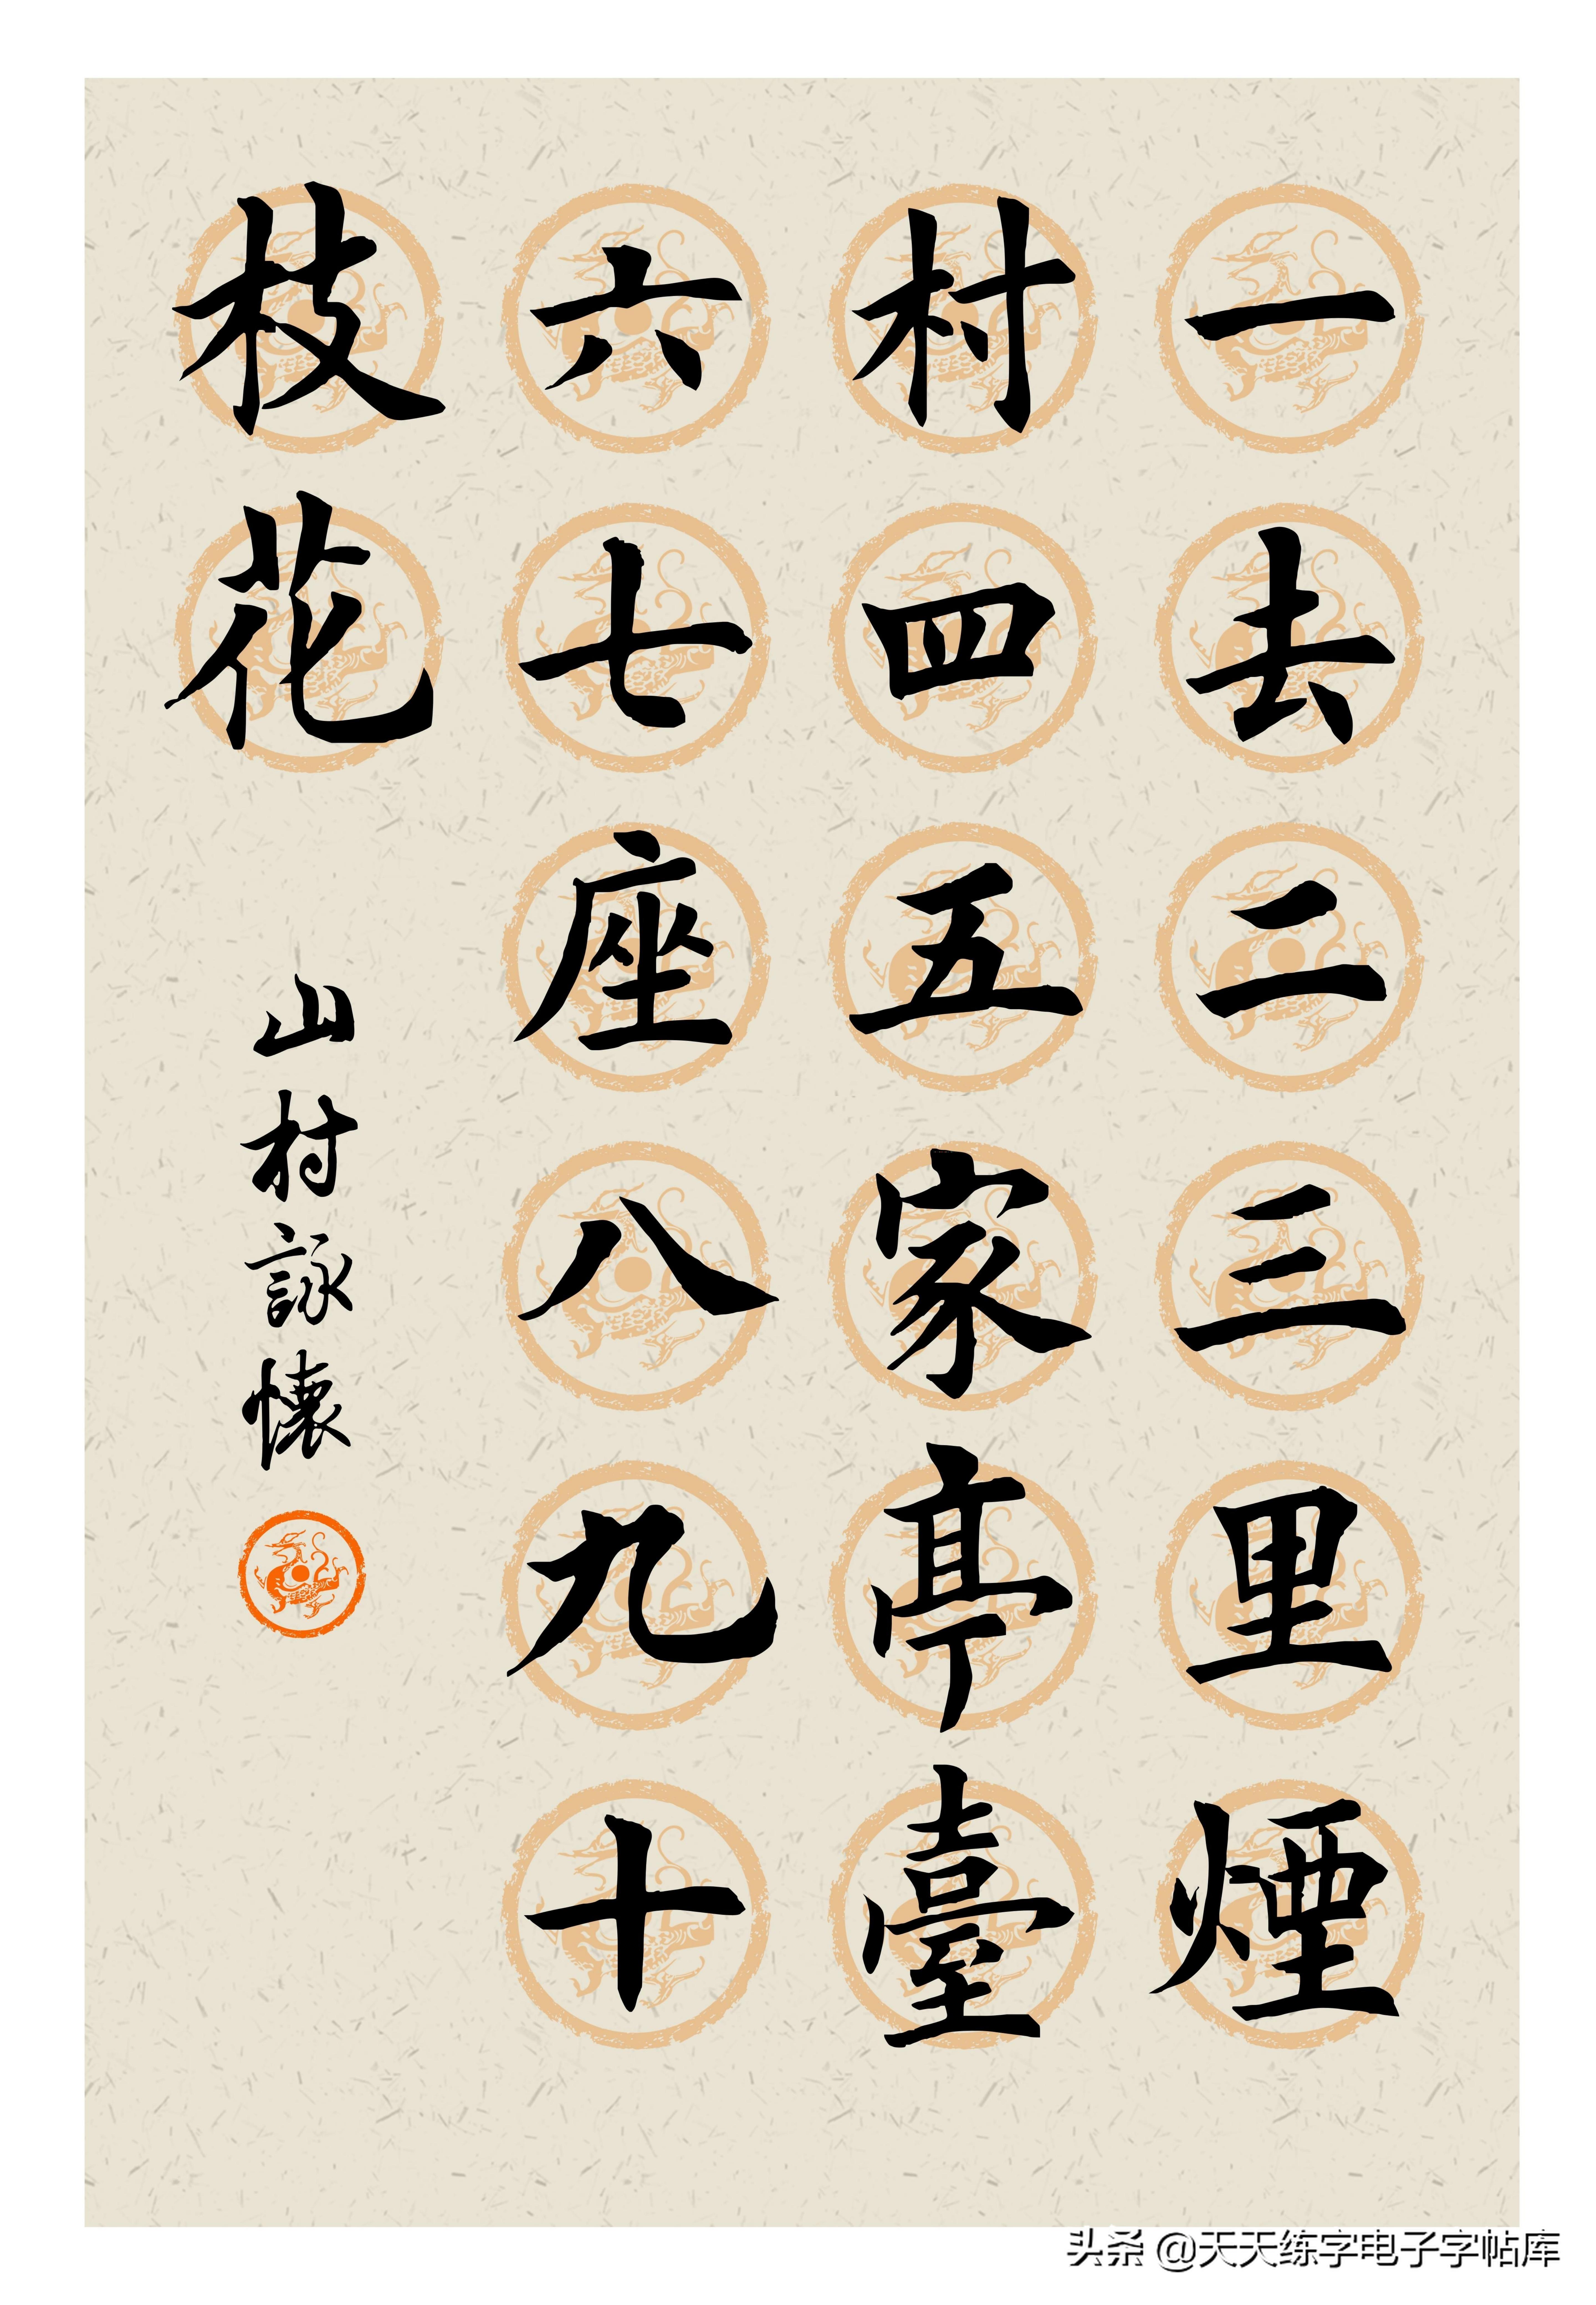 一去二三里煙
村四五家亭臺
六七座八九十
枝花
山村詠懷
头条 @天天练字电子字帖库